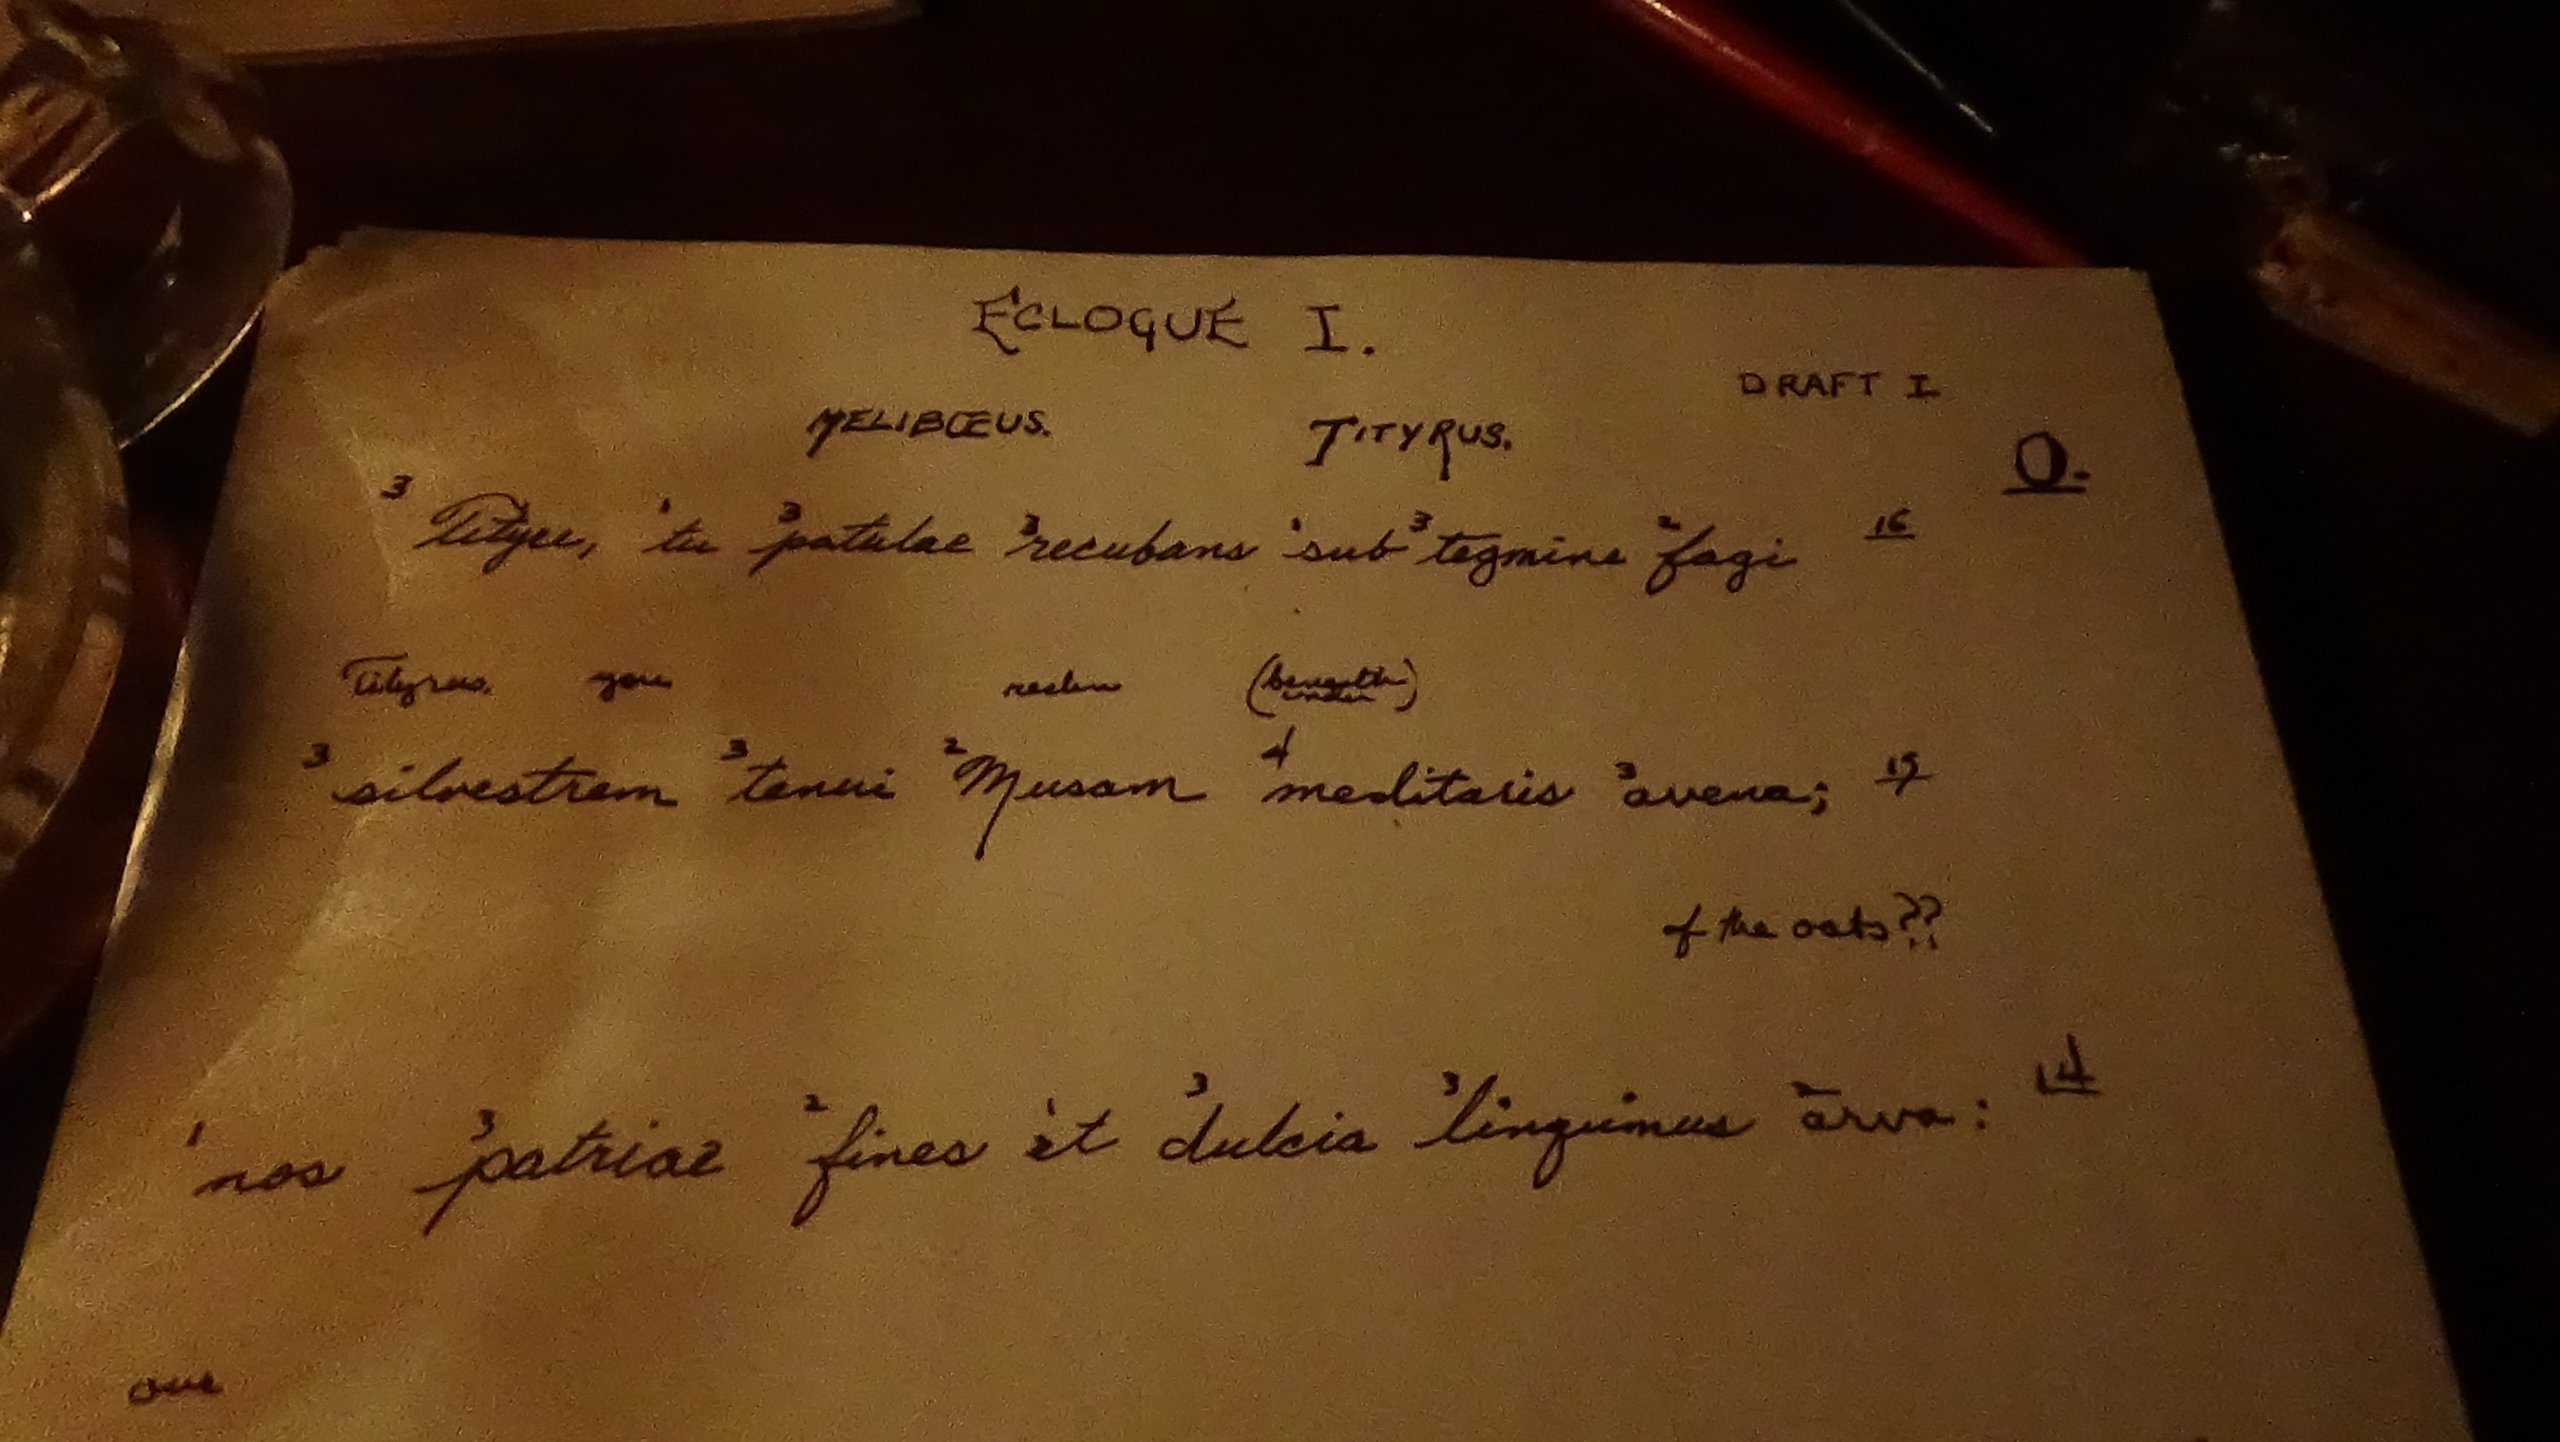 ECLOGUE I.
DRAFT I
MELIBŒUS. TITYRUS.
O.
3 Tityre, 1 tu 3 patulae 3 recubans 1 sub 3 tegmine 2 fagi 16
Tityrus. you reclin (beneath under)
3 silvestrem 3 tenui 2 Musam 4 meditaris 3 avena; 15
of the oats??
1 nos 3 patriae 2 fines 1 et 3 dulcia 3 linquimus 2 arva: 14
our